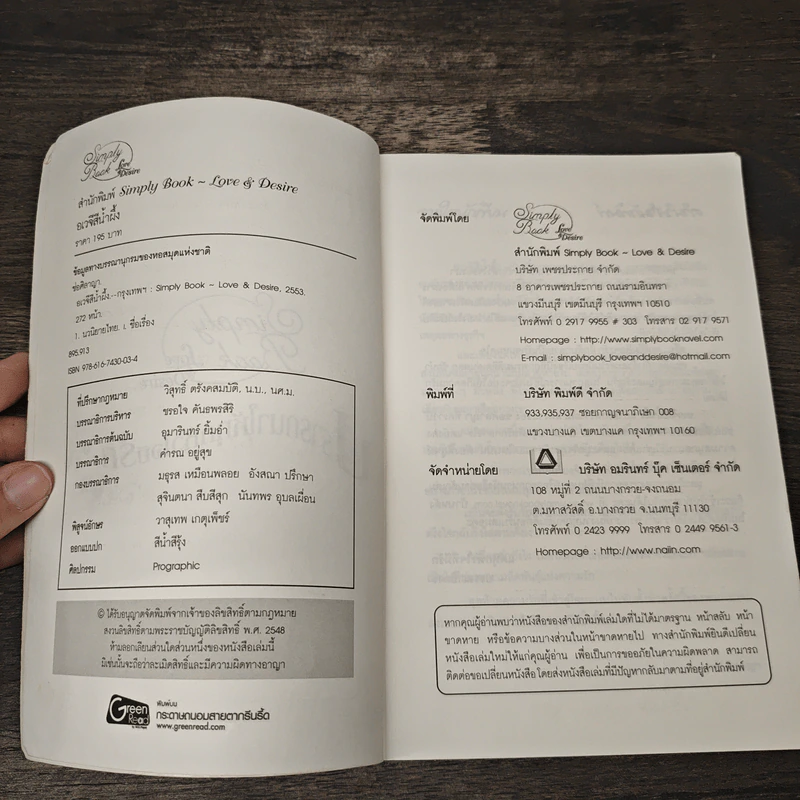 Simply Book Love & Desire
สำนักพิมพ์ Simply Book ~ Love & Desire
อเวจีสีน้ำผึ้ง
ราคา 195 บาท
ข้อมูลทางบรรณานุกรมของหอสมุดแห่งชาติ
ช่อศิลาญา.
อเวจีสีน้ำผึ้ง.--กรุงเทพฯ : Simply Book ~ Love & Desire, 2553.
272 หน้า.
1. นวนิยายไทย. I. ชื่อเรื่อง
895.913
ISBN 978-616-7430-03-4
ที่ปรึกษากฎหมาย วิสุทธิ์ ตรังคสมบัติ, น.บ., นศ.ม.
บรรณาธิการบริหาร ชรอใจ คันธพรสิริ
บรรณาธิการต้นฉบับ อุมารินทร์ ยิ้มอ่ำ
บรรณาธิการ คำรณ อยู่สุข
กองบรรณาธิการ มธุรส เหมือนพลอย อังสณา ปรึกษา
สุจินตนา สืบสีสุก นันทพร อุบลเผื่อน
พิสูจน์อักษร วาสุเทพ เกตุเพ็ชร์
ออกแบบปก สีน้ำสีรุ้ง
ศิลปกรรม Prographic
© ได้รับอนุญาตจัดพิมพ์จากเจ้าของลิขสิทธิ์ตามกฎหมาย
สงวนลิขสิทธิ์ตามพระราชบัญญัติลิขสิทธิ์ พ.ศ. 2548
ห้ามลอกเลียนส่วนใดส่วนหนึ่งของหนังสือเล่มนี้
มิเช่นนั้นจะถือว่าละเมิดสิทธิ์และมีความผิดทางอาญา
Green Read
พิมพ์บน
กระดาษถนอมสายตากรีนรี้ด
www.greenread.com
จัดพิมพ์โดย Simply Book Love & Desire
สำนักพิมพ์ Simply Book ~ Love & Desire
บริษัท เพชรประกาย จำกัด
8 อาคารเพชรประกาย ถนนรามอินทรา
แขวงมีนบุรี เขตมีนบุรี กรุงเทพฯ 10510
โทรศัพท์ 0 2917 9955 # 303 โทรสาร 02 917 9571
Homepage : http://www.simplybooknovel.com
E-mail : simplybook_loveanddesire@hotmail.com
พิมพ์ที่ บริษัท พิมพ์ดี จำกัด
933,935,937 ซอยกาญจนาภิเษก 008
แขวงบางแค เขตบางแค กรุงเทพฯ 10160
จัดจำหน่ายโดย บริษัท อมรินทร์ บุ๊ค เซ็นเตอร์ จำกัด
108 หมู่ที่ 2 ถนนบางกรวย-จงถนอม
ต.มหาสวัสดิ์ อ.บางกรวย จ.นนทบุรี 11130
โทรศัพท์ 0 2423 9999 โทรสาร 0 2449 9561-3
Homepage : http://www.naiin.com
หากคุณผู้อ่านพบว่าหนังสือของสำนักพิมพ์เล่มใดที่ไม่ได้มาตรฐาน หน้าสลับ หน้า
ขาดหาย หรือข้อความบางส่วนในหน้าขาดหายไป ทางสำนักพิมพ์ยินดีเปลี่ยน
หนังสือเล่มใหม่ให้แก่คุณผู้อ่าน เพื่อเป็นการขออภัยในความผิดพลาด สามารถ
ติดต่อขอเปลี่ยนหนังสือ โดยส่งหนังสือเล่มที่มีปัญหากลับมาตามที่อยู่สำนักพิมพ์